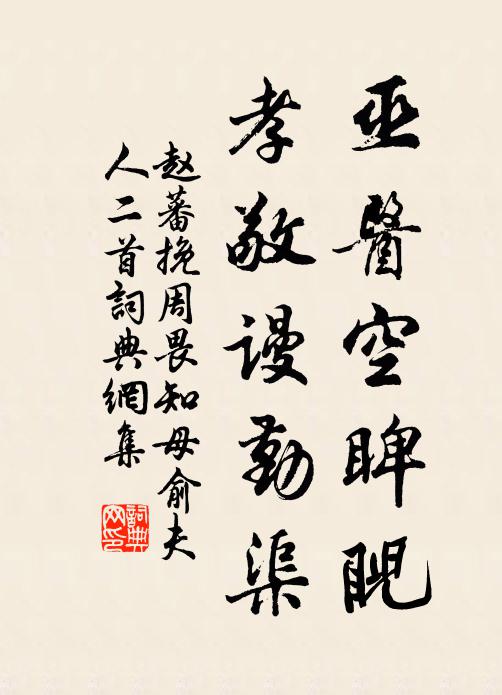 巫醫空睥睨
孝敬谩勤渠
赵蕃挽周畏知母俞夫
人二首詞典網集
詞典
网印